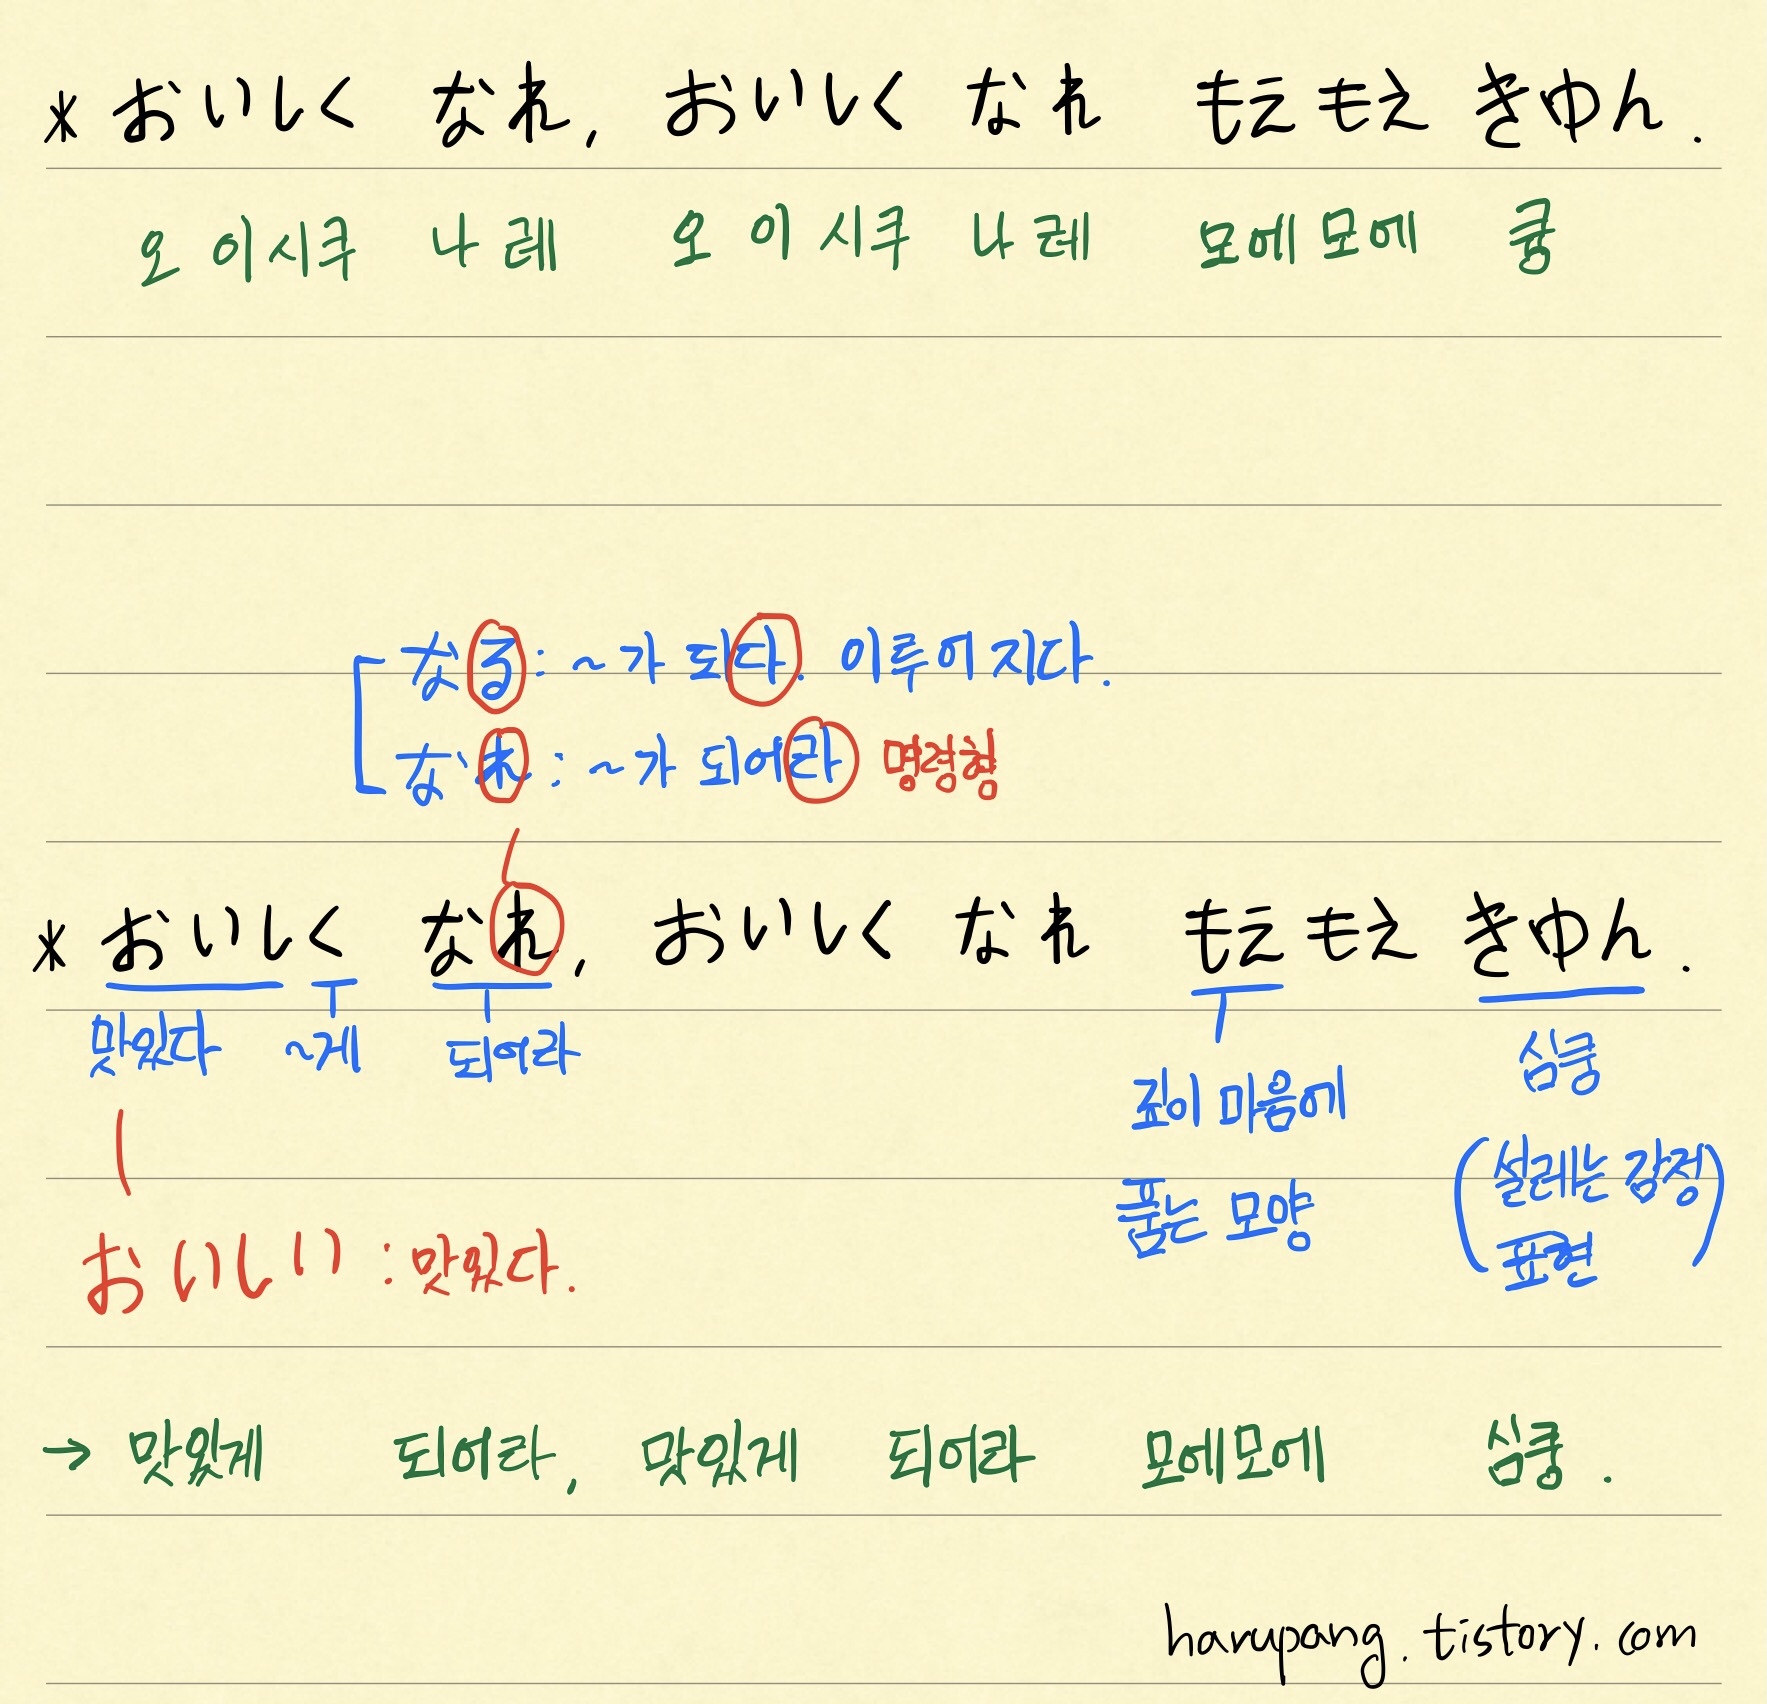 * おいしく なれ, おいしく なれ もえもえ きゅん.
오 이시쿠 나레 오 이시쿠 나레 모에모에 큥
なる : ~가 되다. 이루어지다.
なれ : ~가 되어라 명령형
* おいしく なれ, おいしく なれ もえもえ きゅん.
맛있다 ~게 되어라 깊이 마음에 품는 모양 심쿵
(설레는 감정 표현)
おいしい : 맛있다.
→ 맛있게 되어라, 맛있게 되어라 모에모에 심쿵.
harupang.tistory.com